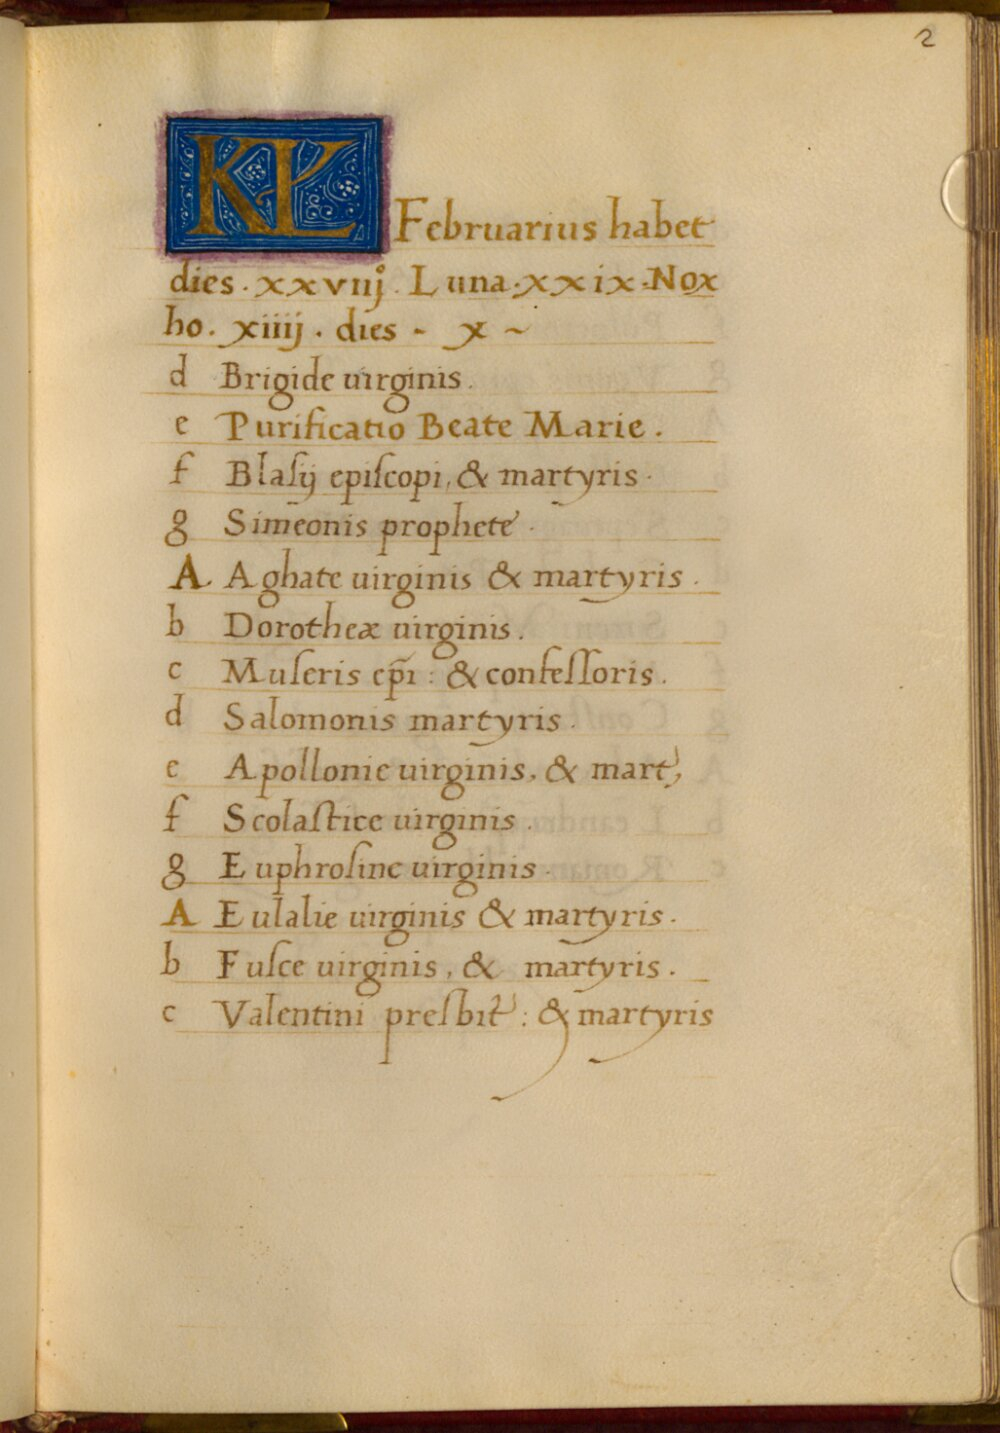 2
KL Februarius habet
dies . xxviiij . Luna . xxix . Nox
ho . xiiij . dies - x ~
d Brigide uirginis .
e Purificatio Beate Marie .
f Blaſij epiſcopi, & martyris .
g Simeonis prophete .
A Aghate uirginis & martyris .
b Dorotheæ uirginis .
c Muſeris ep̃i : & confeſſoris .
d Salomonis martyris .
e Apollonie uirginis, & mart,
f Scolaſtice uirginis .
g Euphroſine uirginis .
A Eulalie uirginis & martyris .
b Fuſce uirginis , & martyris .
c Valentini preſbit : & martyris